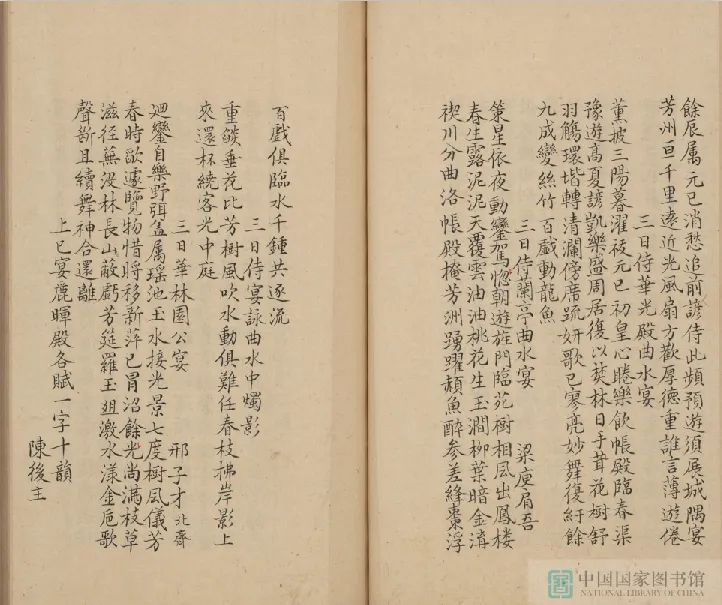 餘辰属元巳消愁追前諺侍此頻預遊須展城隅宴
芳洲亘千里遠近光風扇方歡厚德重誰言薄遊倦
三日侍華光殿曲水宴
薫祓三陽暮濯禊元巳初皇心睠樂飲帳殿臨春渠
豫遊高夏諺凱樂盛周居復以焚林日丰茸花樹舒
羽觴環堦轉清瀾傍席疏妍歌已寥亮妙舞復紆餘
九成變絲竹百戲動龍魚
三日侍蘭亭曲水宴 梁庾肩吾
策星依夜動鑾駕惚朝遊旌門臨苑樹相風出鳳楼
春生露泥泥天覆雲油油桃花生玉澗柳葉暗金溝
禊川分曲洛帳殿掩芳洲踴躍頳魚醉参差絳棗浮
百戲俱臨水千鍾共逐流
三日侍宴詠曲水中燭影
重䭔垂花比芳樹風吹水動俱難任春枝拂岸影上
來還杯繞客光中庭
三日華林園公宴 邢子才 北齊
廻鑾自樂野弭盖属瑶池玉水接光景七度樹風儀芳
春時欲遽覽物惜將移新萍已冒沼餘光尚滿枝草
滋徑蕪没林長山蔽虧芳筵羅玉俎激水漾金巵歌
聲斷且續舞神合還離
上巳宴麗暉殿各賦一字十韻
陳後主
中国国家图书馆
NATIONAL LIBRARY OF CHINA